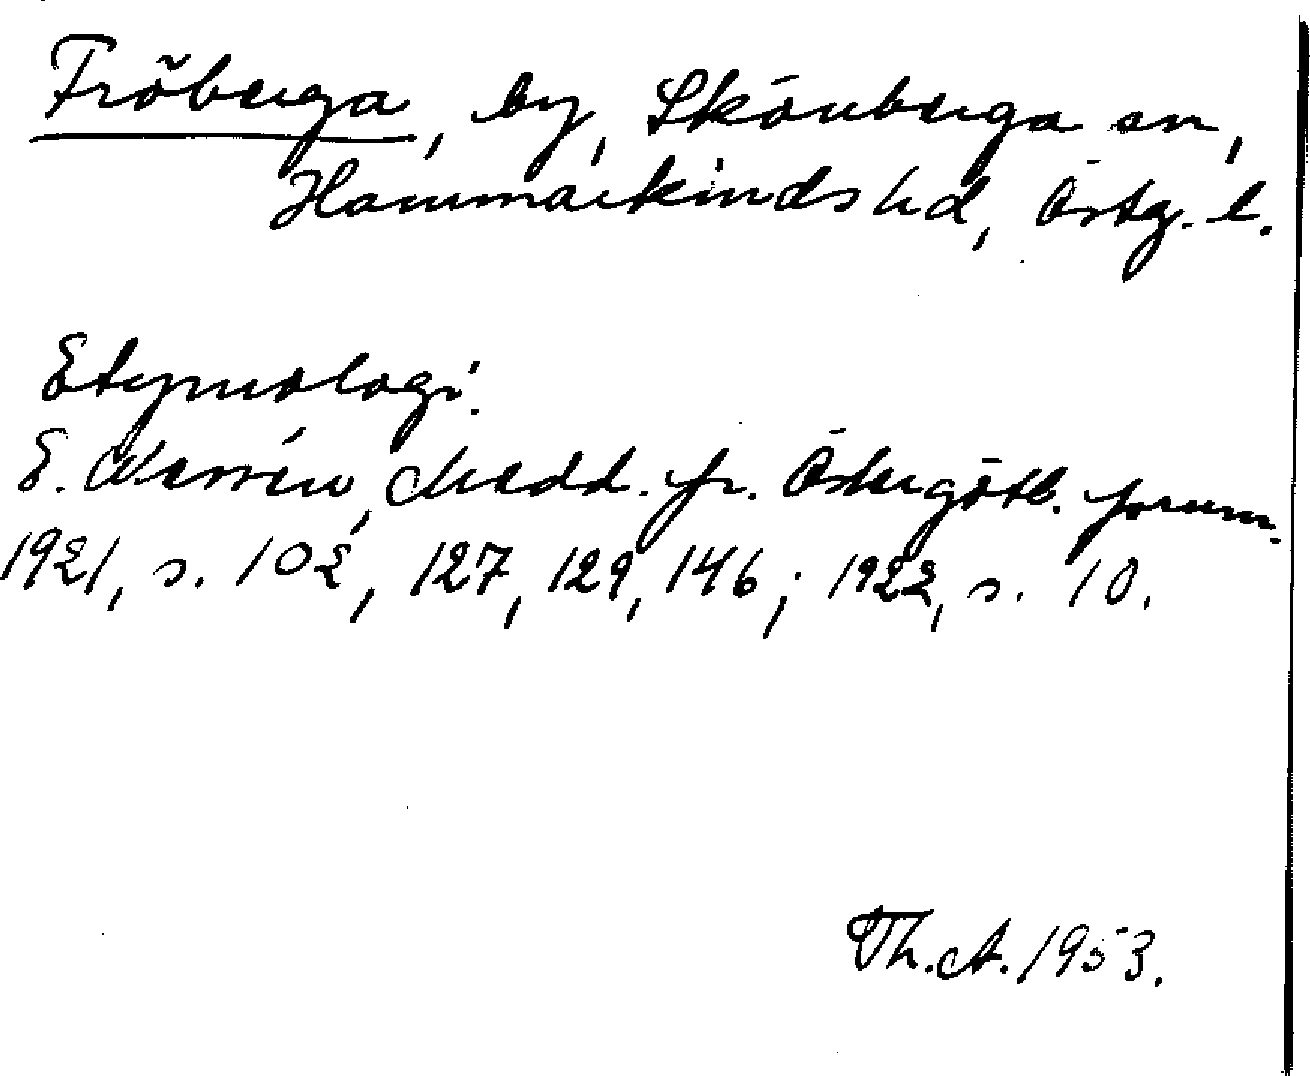 Fröberga, by, Skönberga sn,
Hammarkinds hd, Östg. l.
Etymologi.
E. Wessén, Medd. fr. Östergötl. fornm.
1921, s. 102, 127, 129, 146; 1922, s. 10.
Th. A. 1953.